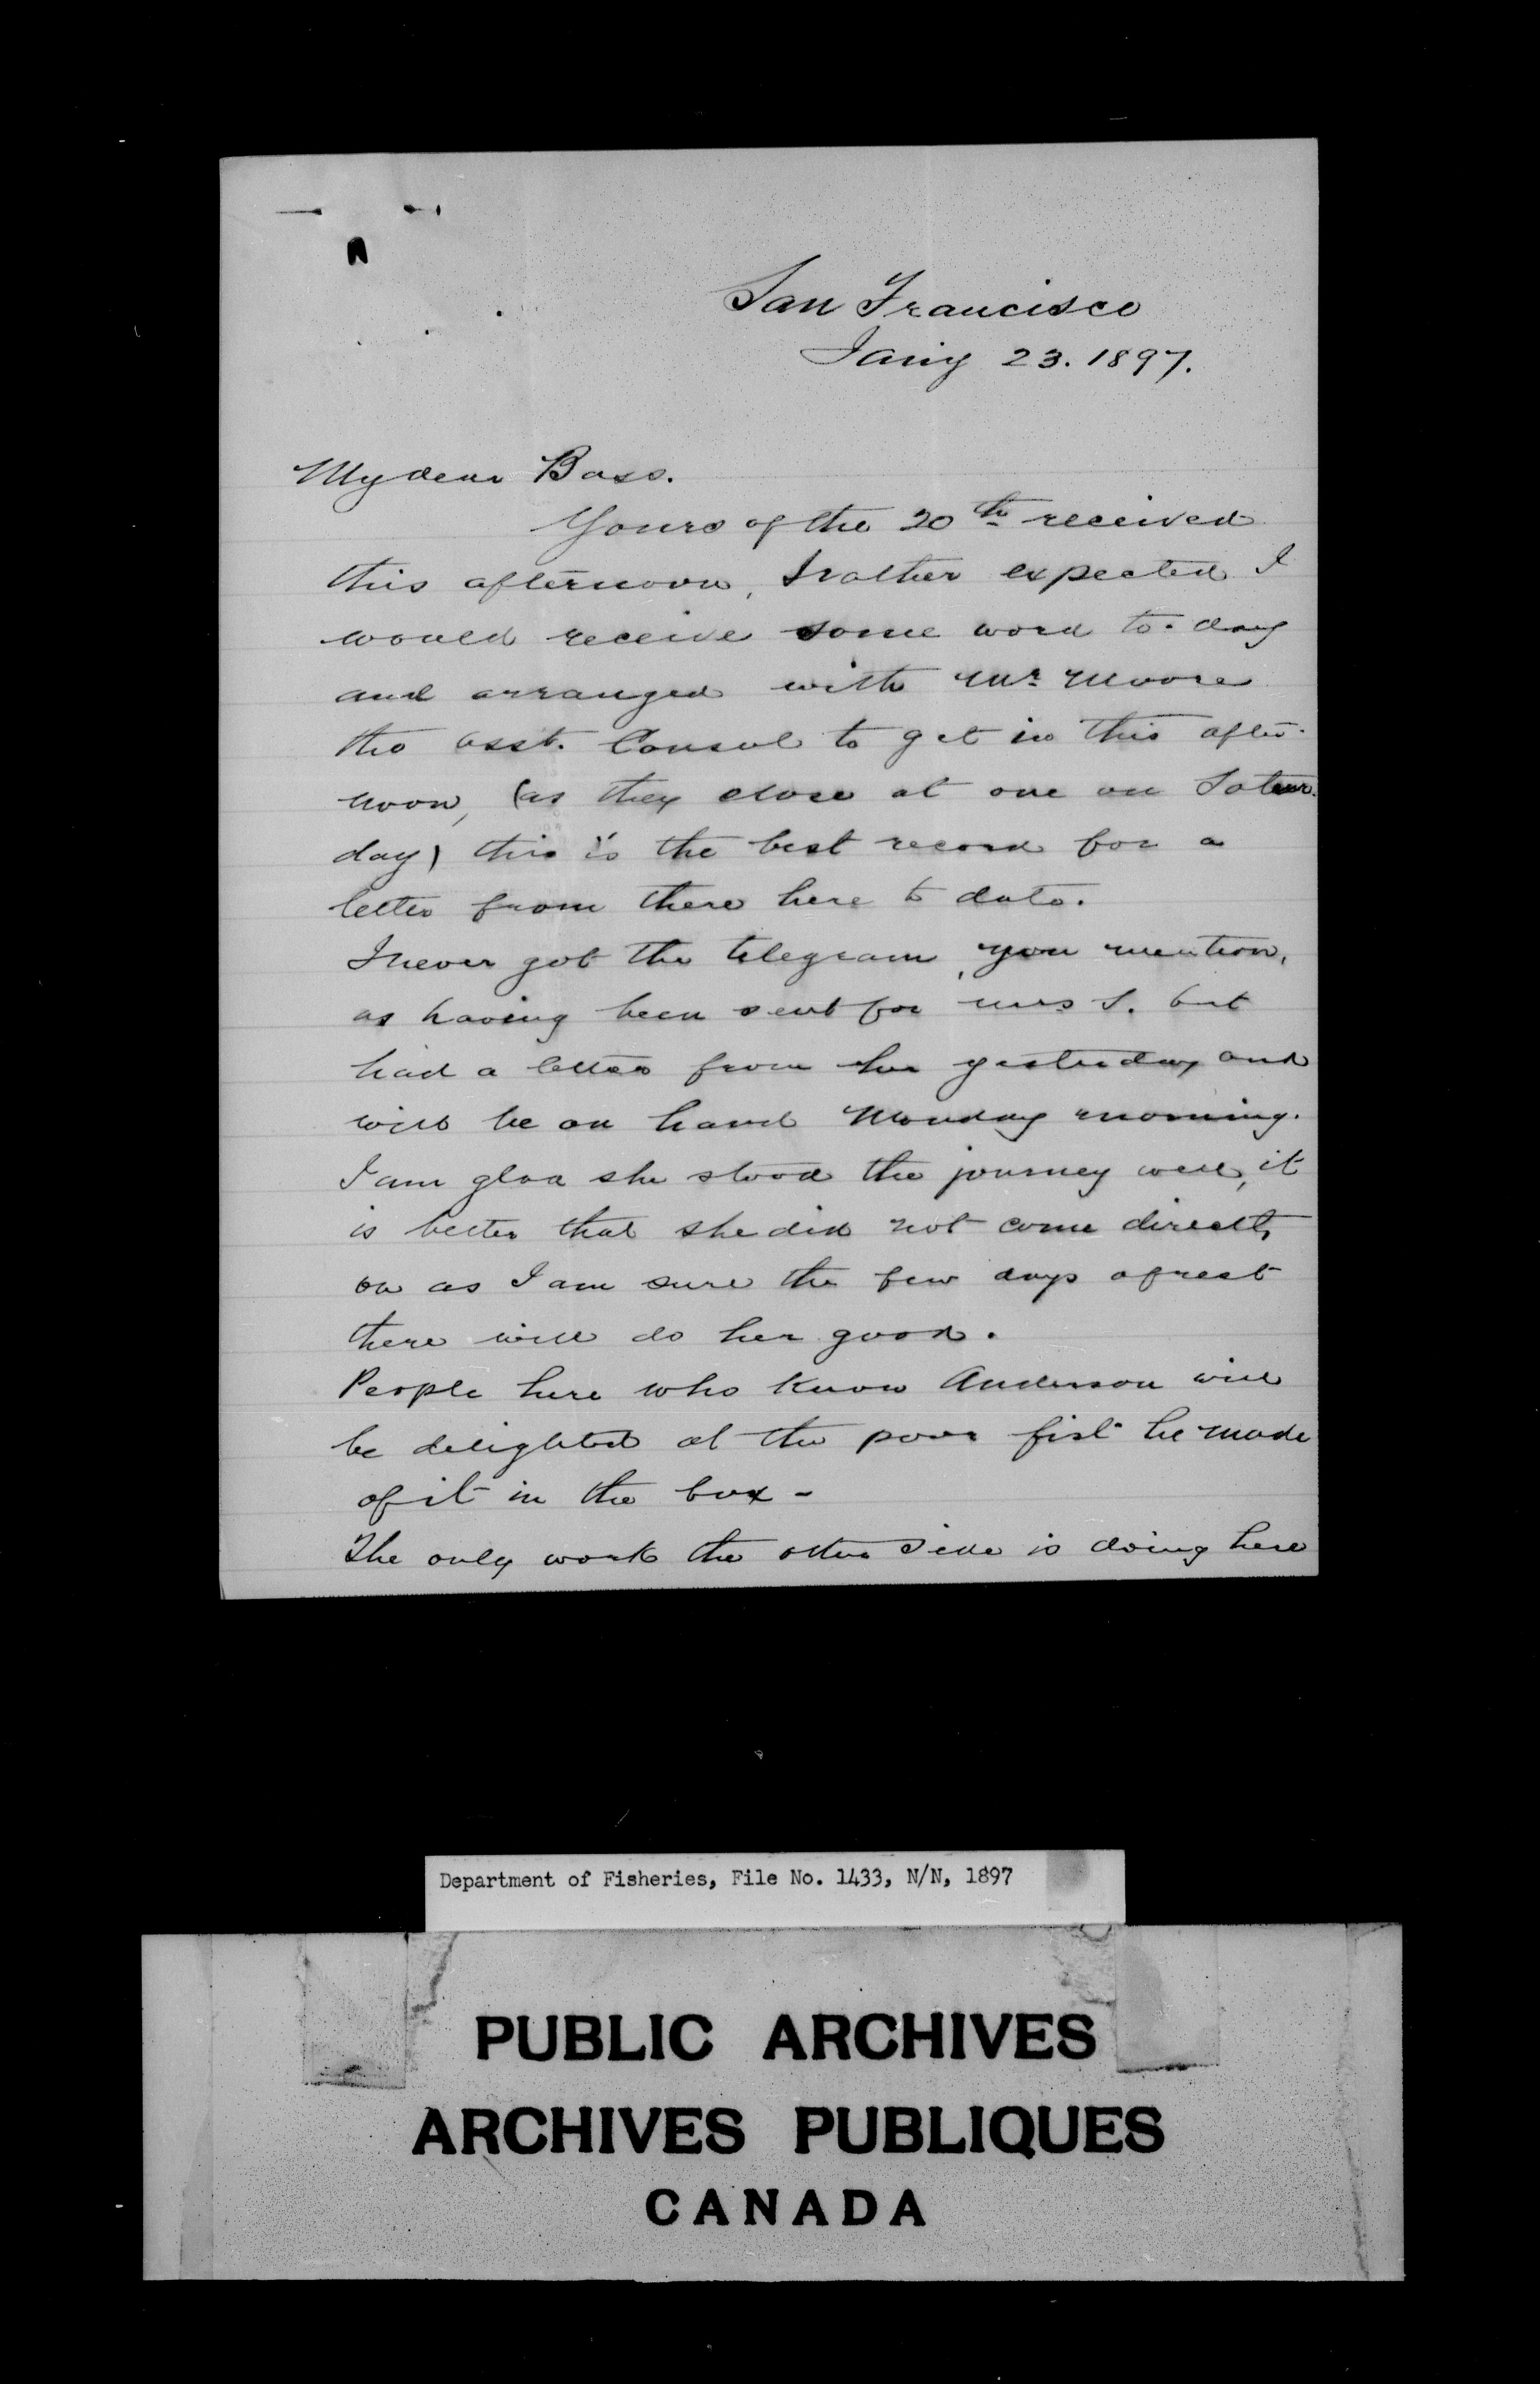 San Francisco
Jany 23. 1897.
My dear Boss.
Yours of the 20th received
this afternoon, I rather expected I
would receive some word to-day
and arranged with Mr Moore
the asst. Consul to get in this after-
noon, (as they close at one on Satur-
day) this is the best record for a
letter from there here to date.
I never got the telegram, you mention,
as having been sent for Mrs S. but
had a letter from her yesterday and
will be on hand Monday morning.
I am glad she stood the journey well, it
is better that she did not come directly
on as I am sure the few days of rest
there will do her good.
People here who know Anderson will
be delighted at the poor fist he made
of it in the box -
The only work the other side is doing here
Department of Fisheries, File No. 1433, N/N, 1897
PUBLIC ARCHIVES
ARCHIVES PUBLIQUES
CANADA